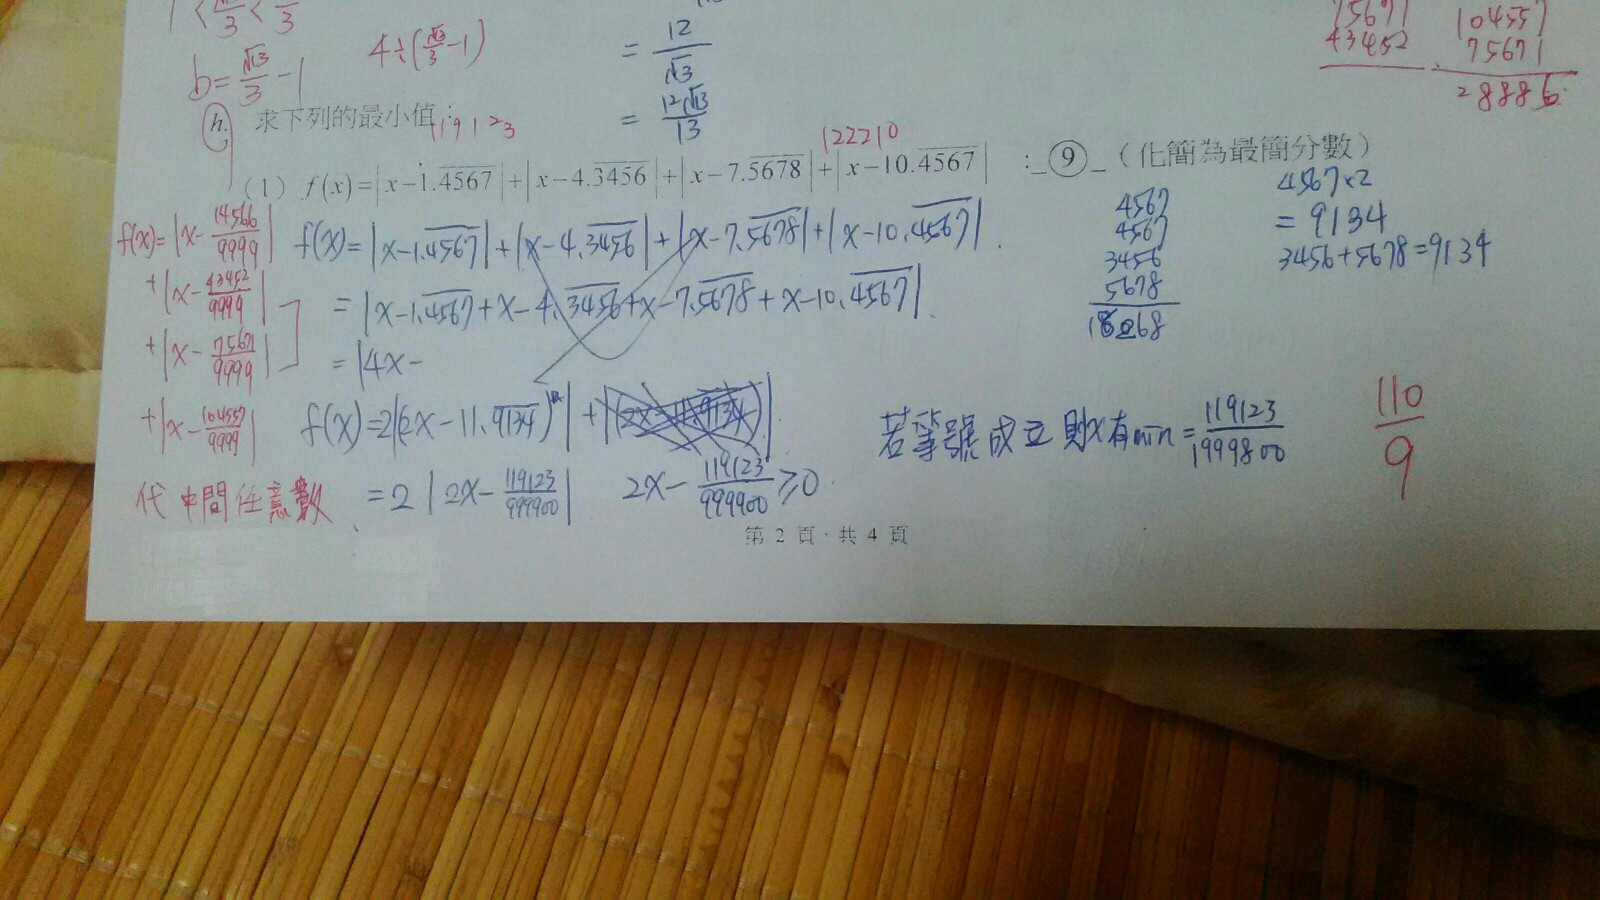 b=√13/3-1
4÷(√13/3-1)
=12/√13
=12√13/13
75671
43452
104557
75671
28886
h. 求下列的最小值：
119123
122210
（1）f(x)=|x-1.4567|+|x-4.3456|+|x-7.5678|+|x-10.4567| ：_⑨_（化簡為最簡分數）
f(x)=|x-14566/9999|
+|x-43452/9999|
+|x-75671/9999|
+|x-104557/9999|
代中間任意數
f(x)=|x-1.4567|+|x-4.3456|+|x-7.5678|+|x-10.4567|
=|x-1.4567+x-4.3456+x-7.5678+x-10.4567|
=|4x-
f(x)=2|(2x-11.9134)|+|(2x-11.9134)|
=2|2x-119123/999900| 2x-119123/999900≥0
4567
4567
3456
5678
18268
4567×2
=9134
3456+5678=9134
若等號成立則x有min=119123/1999800
110/9
第 2 頁，共 4 頁